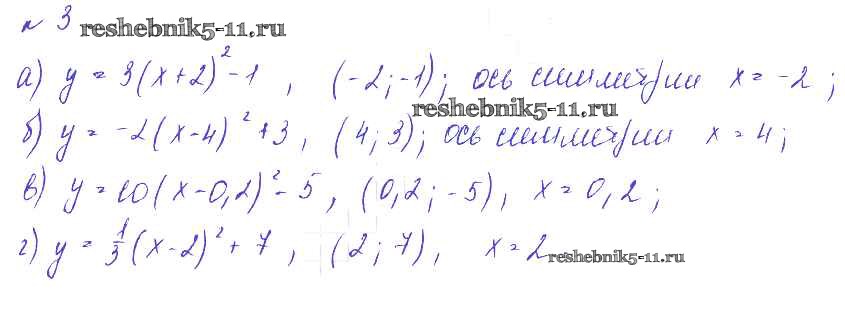 № 3 reshebnik5-11.ru
а) y = 3(x+2)² - 1 , (-2; -1); ось симметрии x = -2 ;
reshebnik5-11.ru
б) y = -2(x-4)² + 3 , (4; 3); ось симметрии x = 4 ;
в) y = 10(x-0,2)² - 5 , (0,2; -5), x = 0,2 ;
г) y = 1/3(x-2)² + 7 , (2; 7), x = 2 reshebnik5-11.ru